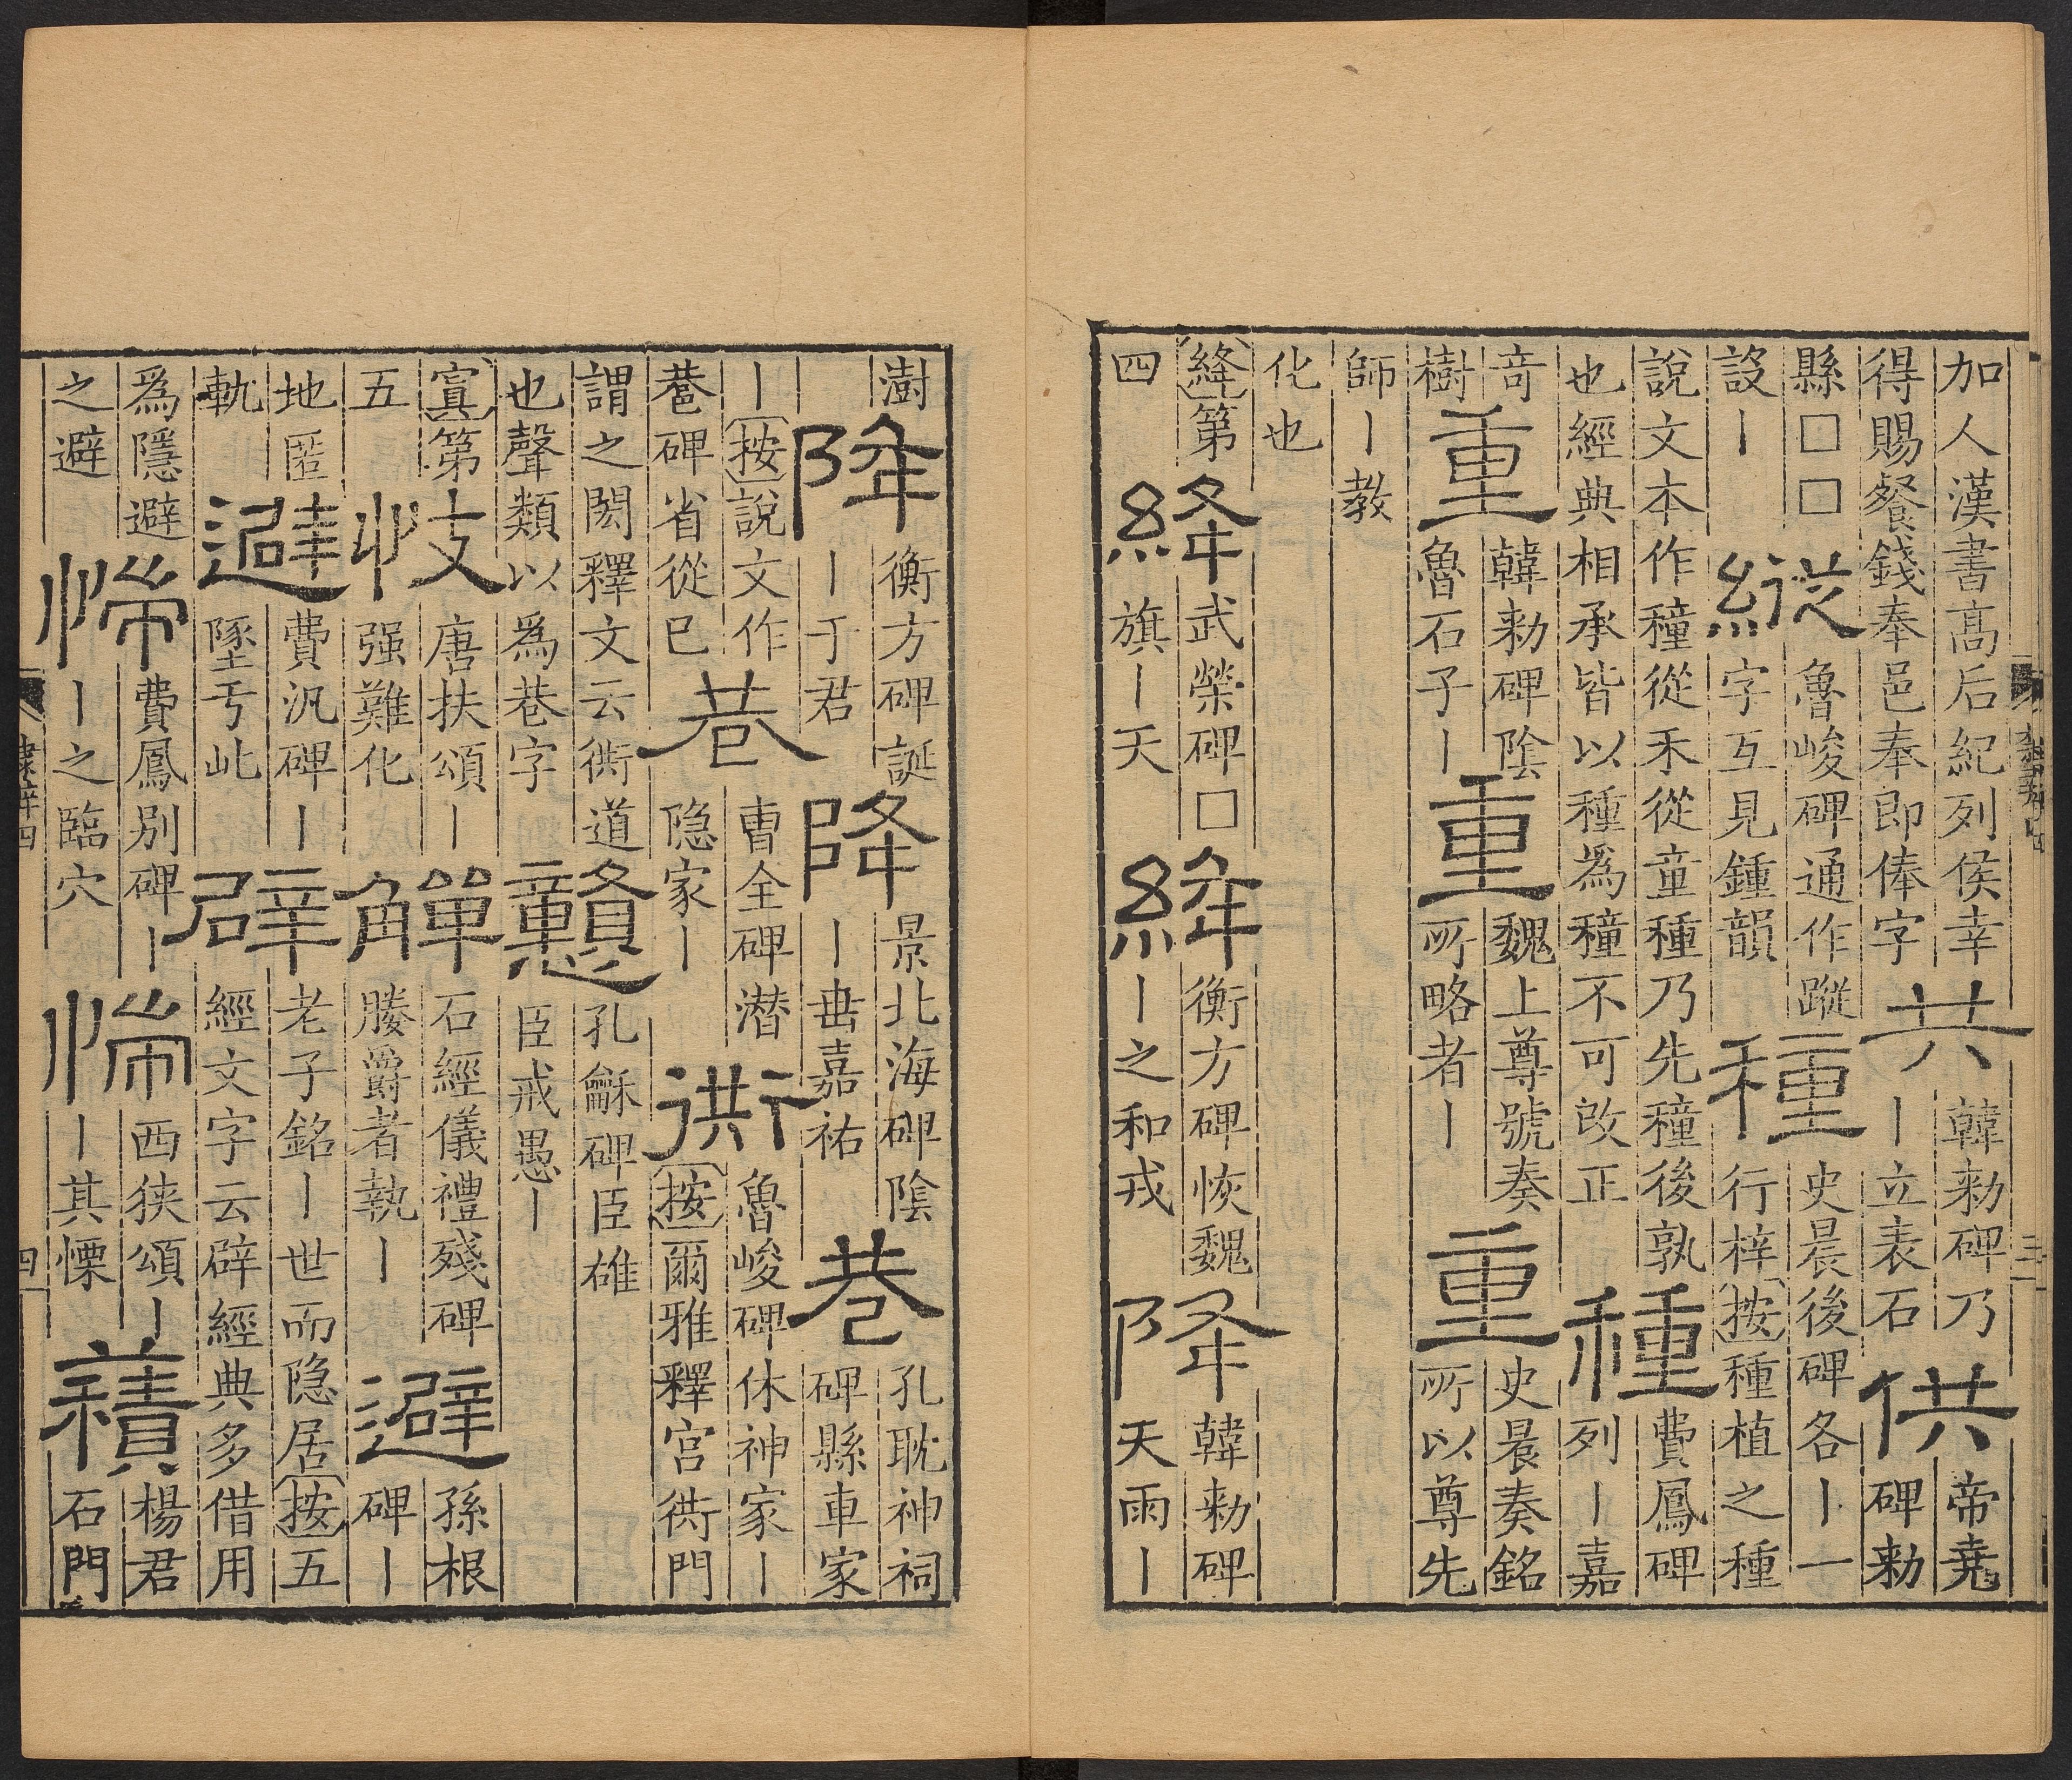 加人漢書高后紀列侯幸得賜餐錢奉邑奉即俸字共韓勑碑乃丨立表石供帝堯碑勑
縣□□設丨縱魯峻碑通作蹤字互見鍾韻種史晨後碑各丨一行梓按種植之種
說文本作穜從禾從童種乃先穜後孰也經典相承皆以種為穜不可改正種費鳳碑列丨嘉
奇樹重韓勑碑陰魯石子丨重魏上尊號奏所略者丨重史晨奏銘所以尊先
師丨教化也
絳第四絳武榮碑□旗丨天絳衡方碑恢魏丨之和戎降韓勑碑天雨丨
澍降衡方碑誕丨于君降景北海碑陰丨垂嘉祐巷孔耽神祠碑縣車家
丨按說文作巷碑省從巳巷曹全碑潛隐家丨衖魯峻碑休神家丨按爾雅釋宫衖門
謂之閎釋文云衖道也聲類以為巷字戇孔龢碑臣雄臣戒愚丨
寘第五忮唐扶頌丨强難化觶石經儀禮殘碑媵爵者執丨避孫根碑丨
地匿軌避費汎碑丨墜亏此辟老子銘丨世而隐居按五經文字云辟經典多借用
爲隱避之避惴費鳳別碑丨丨之臨穴惴西狭頌丨丨其慄積楊君石門
隸辨四
四